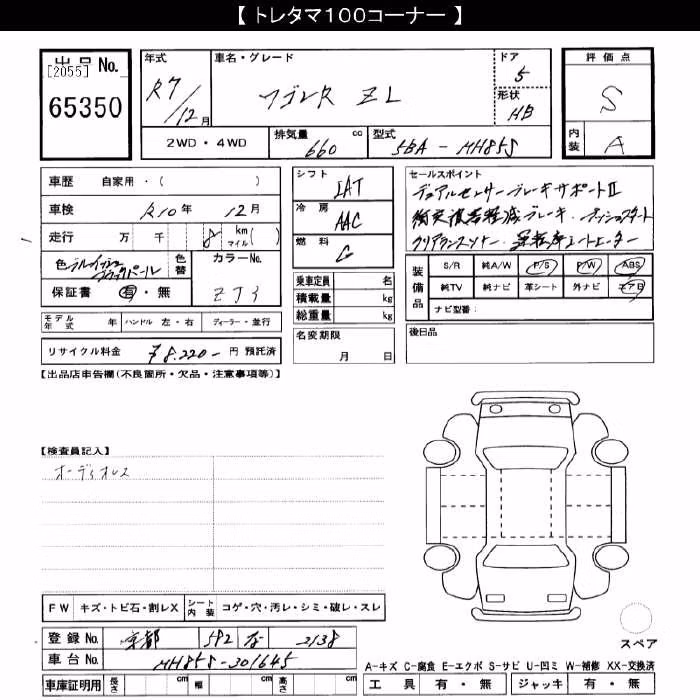 【トレタマ100コーナー】
出品No. [2055] 65350
年式 R7/12月
車名・グレード ワゴンR ZL
ドア 5
形状 HB
評価点 S
内装 A
2WD・4WD
排気量 660 cc
型式 5BA-MH85S
車歴 自家用・( )
車検 R10年 12月
走行 万 千 8 km マイル( )
色 ブルーイッシュブラックパール
色替
カラーNo. ZJ3
保証書 有・無
モデル年式 年 ハンドル 左・右 ディーラー・並行
リサイクル料金 ¥8.220- 円 預託済
シフト IAT
冷房 AAC
燃料 G
乗車定員 名
積載量 kg
総重量 kg
名変期限 月 日
セールスポイント
デュアルセンサーブレーキサポートII
衝突被害軽減ブレーキ・プッシュスタート
クリアランスソナー 運転席シートヒーター
装備品 S/R 純A/W P/S P/W ABS
純TV 純ナビ 革シート 外ナビ エアB
ナビ型番:
後日品
【出品店申告欄(不良箇所・欠品・注意事項等)】
【検査員記入】
オーディオレス
FW キズ・トビ石・割レX シート内装 コゲ・穴・汚レ・シミ・破レ・スレ
登録No. 京都 582 な 2138
車台No. MH85S-301645
車庫証明用 長さ cm 幅 cm 高さ cm
スペア
A-キズ C-腐食 E-エクボ S-サビ U-凹ミ W-補修 XX-交換済
工具 有・無 ジャッキ 有・無